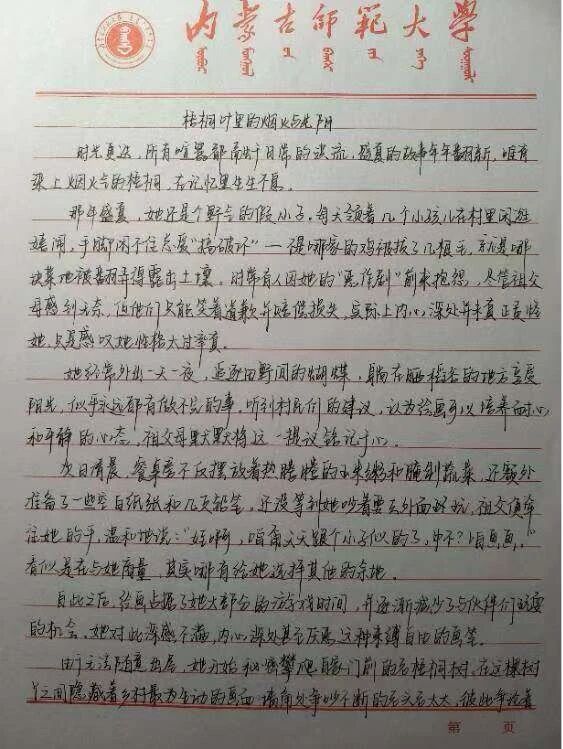 内蒙古师范大学
梧桐叶里的烟火与光阴
时光真远，所有喧嚣都南于日常的波流，盛夏的故事年年翻新，唯有
染上烟火气的梧桐，在记忆里生生不息。
那年盛夏，她还是个野气的假小子。每天领着几个小孩儿在村里闲逛
嬉闹，手脚闲不住总爱"搞破坏"——不是哪家的鸡被拔了几根毛，就是哪
块菜地被翻弄得露出土壤。时常有人因她的"恶作剧"前来抱怨，尽管祖父
母感到无奈，但他们只能笑着道歉并赔偿损失，实际上内心深处并未真正责怪
她，只是感叹她性格太过率真。
她经常外出一天一夜，追逐田野间的蝴蝶，躺在晒稻谷的地方享受
阳光，似乎永远都有做不完的事，听到村民们的建议，认为绘画可以培养耐心
和平静的心态，祖父母默默将这一提议铭记于心。
次日清晨，餐桌旁不仅摆放着热腾腾的玉米粥和腌制蔬菜，还额外
准备了一些空白纸张和几支铅笔，还没等到她吵着要去外面野玩，祖父便牵
住她的手，温和地说："妞啊，咱甭天天跟个小子似的了，中不？咱画画。"
看似是在与她商量，其实哪有给她选择其他的余地。
自此之后，绘画占据了她大部分的游戏时间，并逐渐减少了与伙伴们玩耍
的机会。她对此深感不满，内心深处甚至厌恶这种束缚自由的画笔。
由于无法随意出屋，她开始秘密攀爬自家门前的老梧桐树。在这棵树
之间隐藏着乡村最为生动的画面：墙角处争吵不断的老头老太太，彼此争论着
第 页